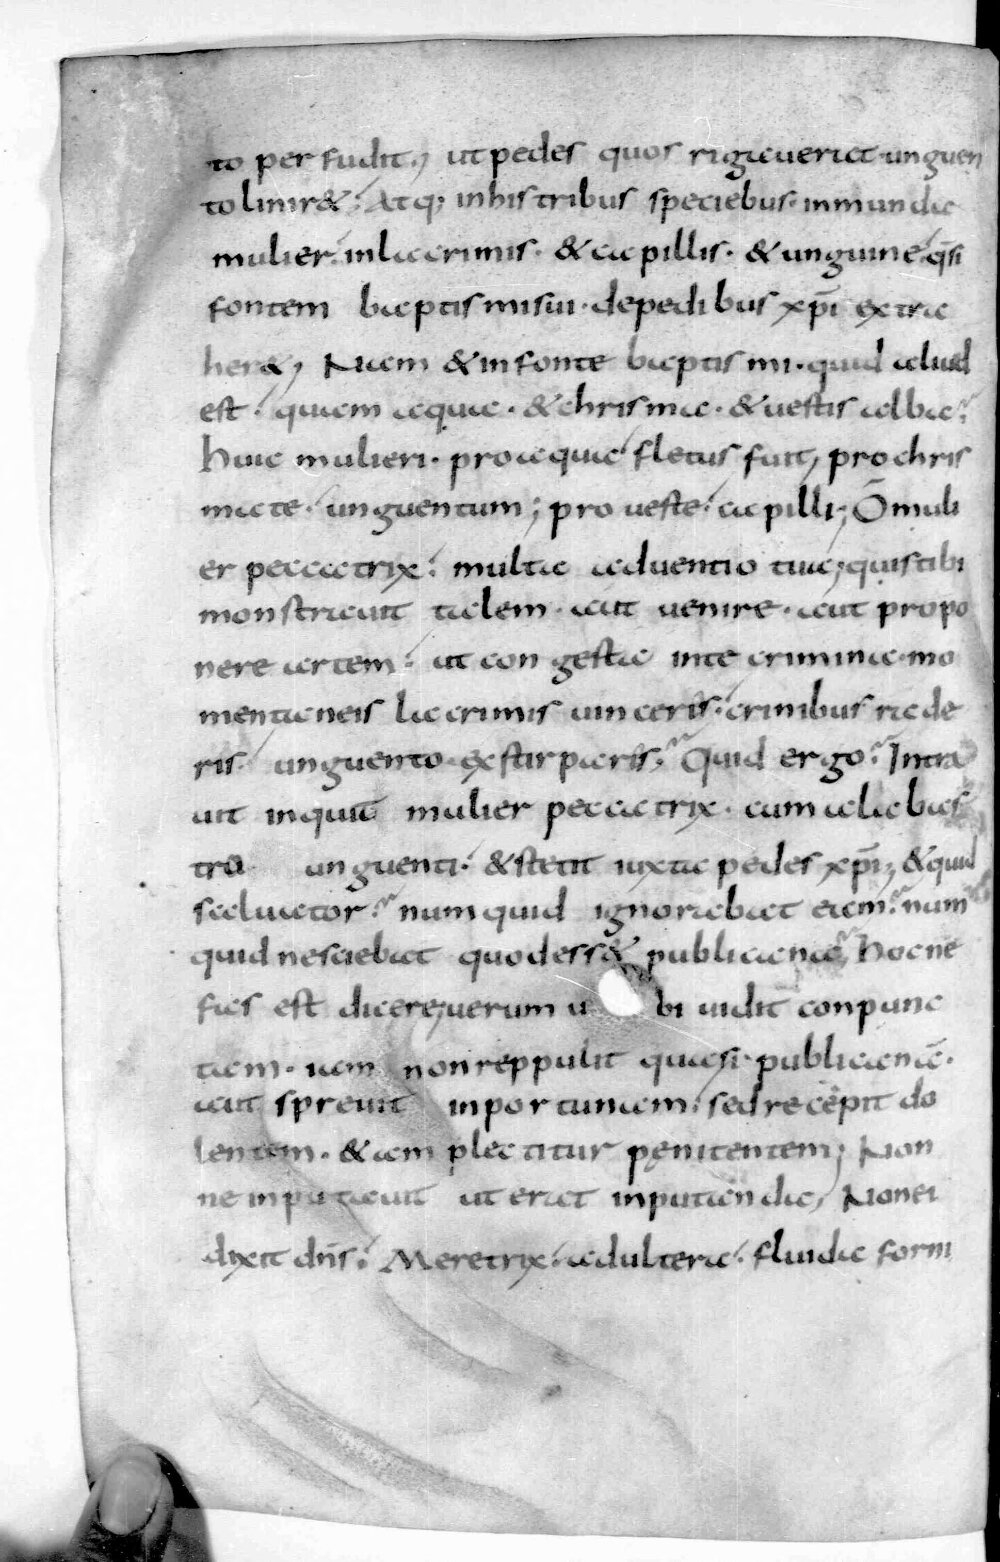 to perfudit, ut pedes quos rigauerat· unguen
to linir&; Atq; inhis tribus speciebus· inmunda
mulier· inlacrimis· & capillis· & unguine· q̄si
fontem baptismisui· depedibus xp̄i extra
her&, Nam & infonte baptismi· quid aliud
est· quam aqua· & chrisma· & uestis alba?
Huic mulieri· proaqua fletus fuit, prochris
mate· unguentum; pro ueste· capilli; Ō muli
er peccatrix· multa aduentio tua; quis tibi
monstrauit talem· aut uenire· aut propo
nere artem· ut congesta inte crimina· mo
mentaneis lacrimis uinceris· crinibus rade
ris· unguento· exstirparis? Quid ergo? Intra
uit inquid mulier peccatrix· cum alabas
tro unguenti· & stetit iuxta pedes xp̄i, & quid
saluator? numquid ignorabat eam? num
quid nesciebat quodess& publicanā? Hocne
fas est dicere; uerum u bi uidit conpunc
tam· iam nonreppulit quasi· publicanā·
aut spreuit inportunam· sedrecepit do
lentem· & amplectitur pęnitentem; Non
ne inputauit ut erat inputanda, Nonei
dixit dn̄s· Meretrix· adultera· fluida forni